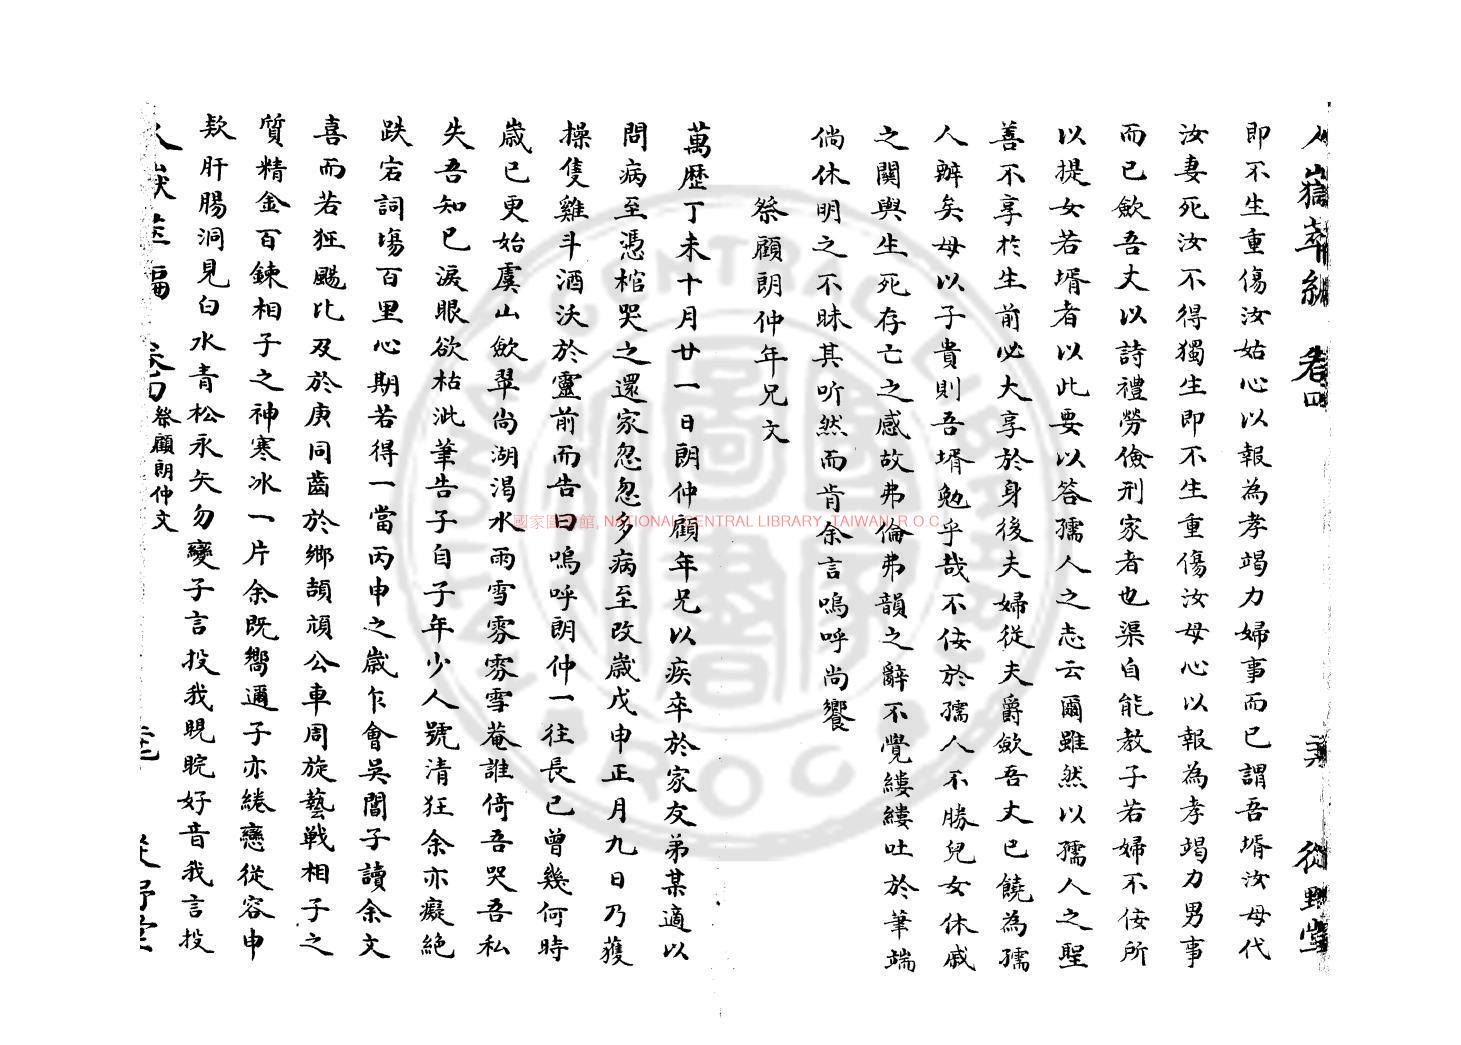 即不生重傷汝姑心以報為孝竭力婦事而已謂吾壻汝母代
汝妻死汝不得獨生即不生重傷汝母心以報為孝竭力男事
而已歛吾丈以詩禮勞儉刑家者也渠自能教子若婦不佞所
以提女若壻者以此要以答孺人之志云爾雖然以孺人之聖
善不享於生前必大享於身後夫婦從夫爵歛吾丈已饒為孺
人辦矣母以子貴則吾壻勉乎哉不佞於孺人不勝兒女休戚
之關與生死存亡之感故弗倫弗韻之辭不覺縷縷吐於筆端
倘休明之不昧其听然而肯余言嗚呼尚饗
祭顧朗仲年兄文
萬歷丁未十月廿一日朗仲顧年兄以疾卒於家友弟某適以
問病至憑棺哭之還家忽忽多病至改歲戊申正月九日乃獲
操隻雞斗酒沃於靈前而告曰嗚呼朗仲一往長已曾幾何時
歲已更始虞山歛翠尚湖渴水雨雪雰雰雪菴誰倚吾哭吾私
失吾知已淚眼欲枯泚筆告子自子年少人號清狂余亦癡絕
跌宕詞場百里心期若得一當丙申之歲乍會吳閶子讀余文
喜而若狂颺比及於庚同齒於鄉頡頏公車周旋藝戰相子之
質精金百鍊相子之神寒冰一片余既嚮邇子亦繾戀從容申
欵肝腸洞見白水青松永矢勿變子言投我睍睆好音我言投
卷四 祭顧朗仲文
國家圖書館, NATIONAL CENTRAL LIBRARY, TAIWAN, R.O.C